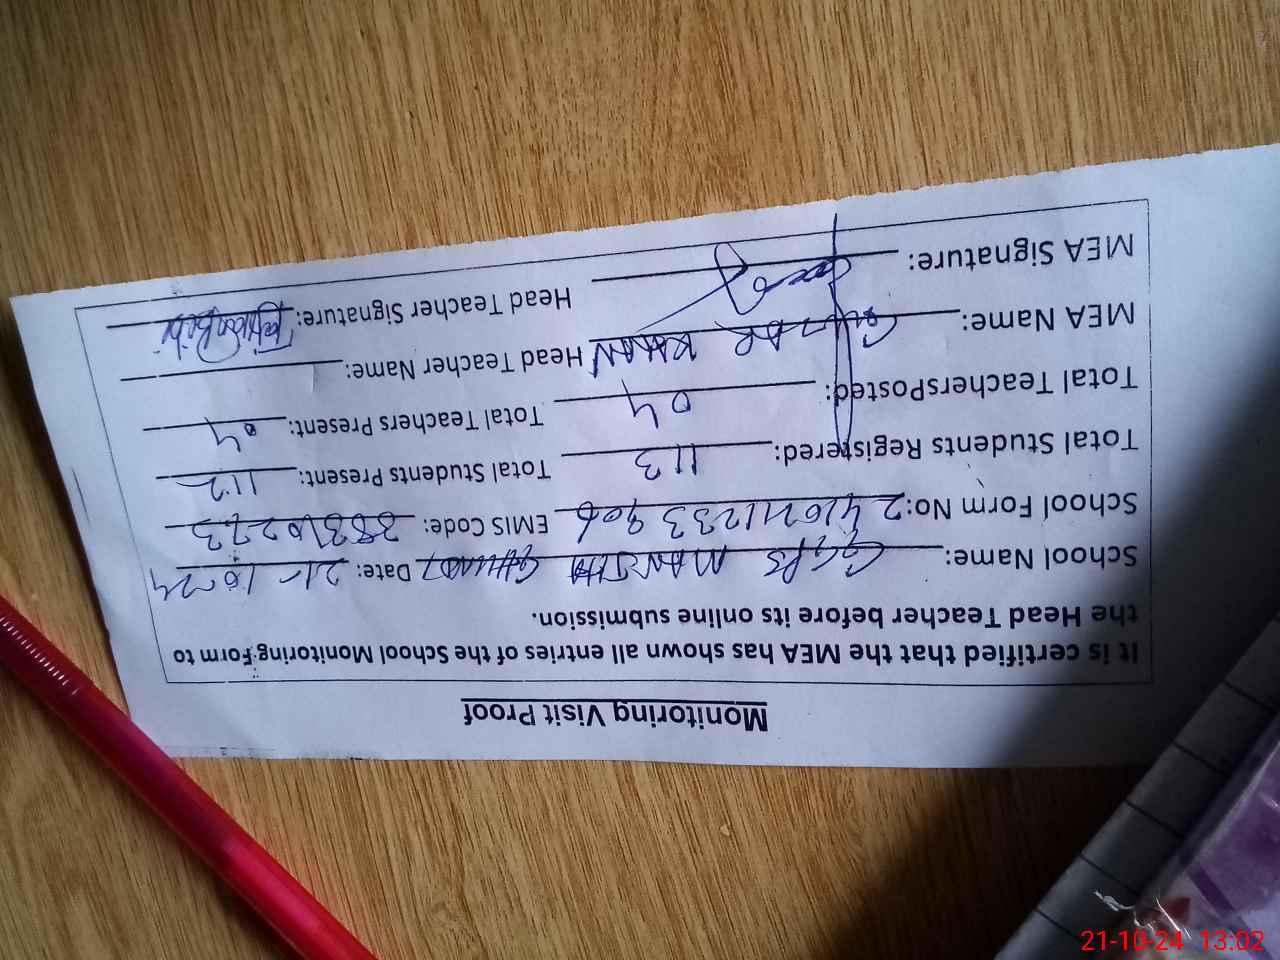 Monitoring Visit Proof
It is certified that the MEA has shown all entries of the School Monitoring Form to
the Head Teacher before its online submission.
School Name: GGPS Date: 21-10-24
School Form No: 2410211233906 EMIS Code: 38310273
Total Students Registered: 113 Total Students Present: 112
Total TeachersPosted: 04 Total Teachers Present: 04
MEA Name: KHAN Head Teacher Name:
MEA Signature: Head Teacher Signature: Bibi
21-10-24 13:02